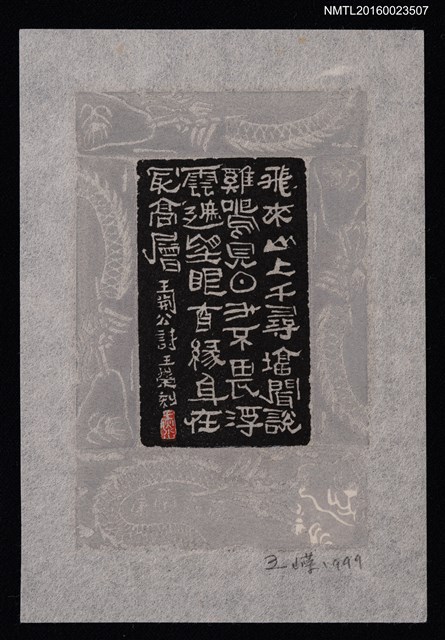 NMTL20160023507
飛來山上千尋墖聞說
雞鳴見日升不畏浮
雲遮望眼自緣身在
冣高層 王荊公詩王嶸刻
王嶸 1999